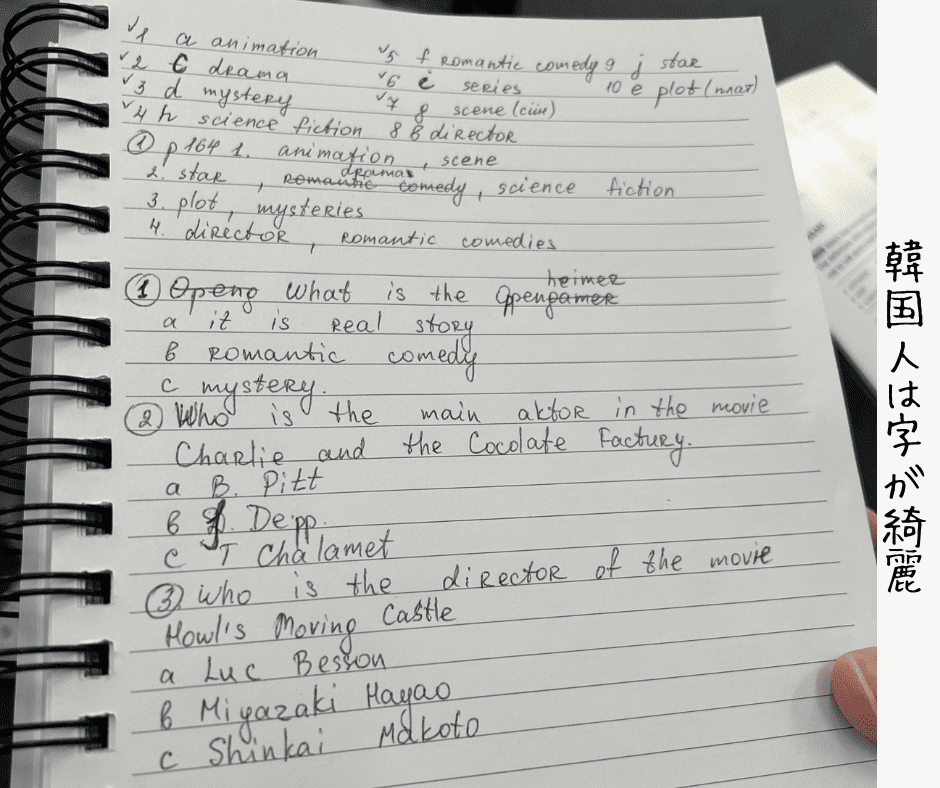 √1 a animation √5 f romantic comedy 9 j star
√2 c drama √6 i series 10 e plot (плат)
√3 d mystery √7 g scene (сіін)
√4 h science fiction 8 b director
① p164 1. animation, scene
2. star, romantic comedy dramas, science fiction
3. plot, mysteries
4. director, romantic comedies
① Openg What is the Oppengamer heimer
a it is real story
b romantic comedy
c mystery.
② Who is the main aktor in the movie
Charlie and the Cocolate Factury.
a B. Pitt
b J. Depp.
c T Chalamet
③ who is the director of the movie
Howl's Moving Castle
a Luc Besson
b Miyazaki Hayao
c Shinkai Makoto
韓国人は字が綺麗